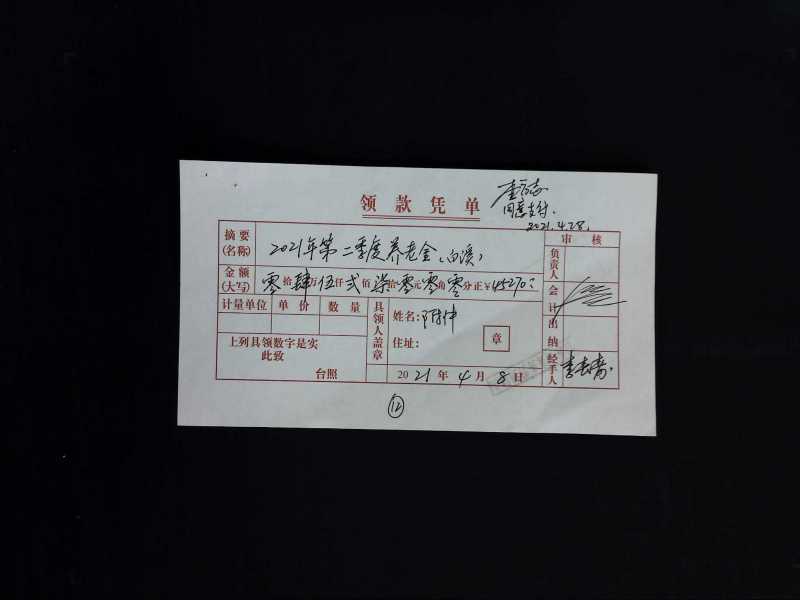 领款凭单
同意支付.
2021.4.28.
摘要(名称) 2021年第二季度养老金(白溪)
审核
负责人
金额(大写) 零拾肆万伍仟贰佰柒拾零元零角零分正¥45270
会计
计量单位 单价 数量
具领人盖章
姓名:陈仲
住址:
章
出纳
上列具领数字是实
此致
台照
2021年4月8日
经手人
12